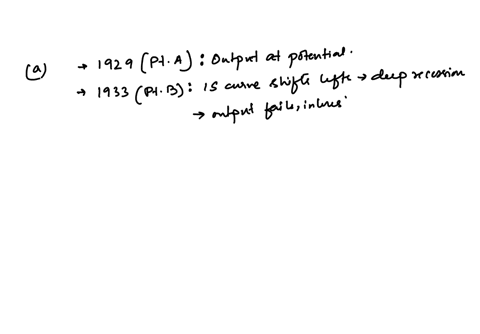 (a) → 1929 (Pt. A) : Output at potential.
→ 1933 (Pt. B) : IS curve shifts left → deep recession
→ output falls, interes